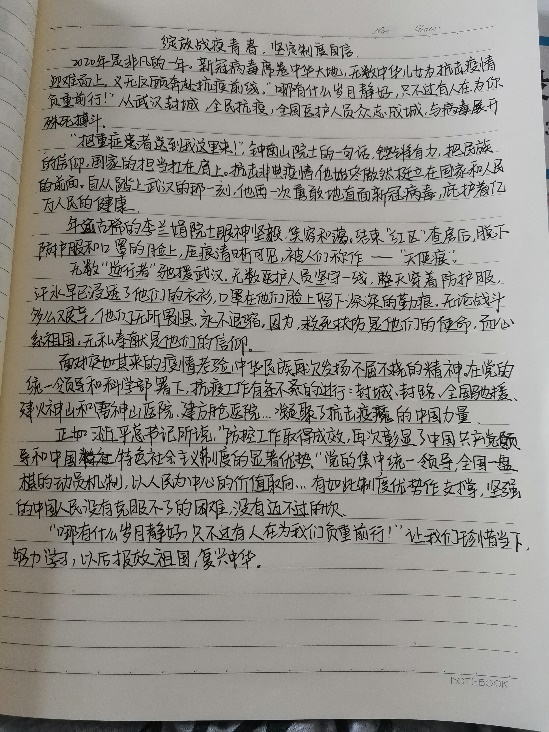 No. Date.
绽放战疫青春 坚定制度自信
2020年是非凡的一年,新冠病毒席卷中华大地,无数中华儿女为抗击疫情
迎难而上,义无反顾奔赴抗疫前线,"哪有什么岁月静好,只不过有人在为你
负重前行!"从武汉封城,全民抗疫,全国医护人员众志成城,与病毒展开
殊死搏斗。
"把重症患者送到我这里来!"钟南山院士的一句话,铿锵有力,把民族
的信仰,国家的担当扛在肩上,抗击非典疫情,他始终傲然挺立在国家和人民
的前面,自从踏上武汉的那一刻,他再一次勇敢地直面新冠病毒,庇护着亿
万人民的健康。
年逾古稀的李兰娟院士眼神坚毅,笑容和蔼,结束"红区"查房后,脱下
防护服和口罩的脸上,压痕清晰可见,被人们称作——"天使痕"。
无数"逆行者"驰援武汉,无数医护人员坚守一线,整天穿着防护服,
汗水早已浸透了他们的衣衫,口罩在他们脸上留下深深的勒痕,无论战斗
多么艰辛,他们无所畏惧,永不退缩,因为,救死扶伤是他们的使命,而心
系祖国,无私奉献是他们的信仰。
面对突如其来的疫情考验,中华民族再次发扬不屈不挠的精神,在党的
统一领导和科学部署下,抗疫工作有条不紊的进行:封城、封路、全国驰援、
建火神山和雷神山医院、建方舱医院...凝聚了抗击疫情的中国力量
正如习近平总书记所说,"防控工作取得成效,再次彰显了中国共产党领
导和中国特色社会主义制度的显著优势。"党的集中统一领导,全国一盘
棋的动员机制,以人民为中心的价值取向...有如此制度优势作支撑,坚强
的中国人民没有克服不了的困难,没有迈不过的坎。
"哪有什么岁月静好,只不过有人在为我们负重前行!"让我们珍惜当下,
努力学习,以后报效祖国,复兴中华。
NOTEBOOK